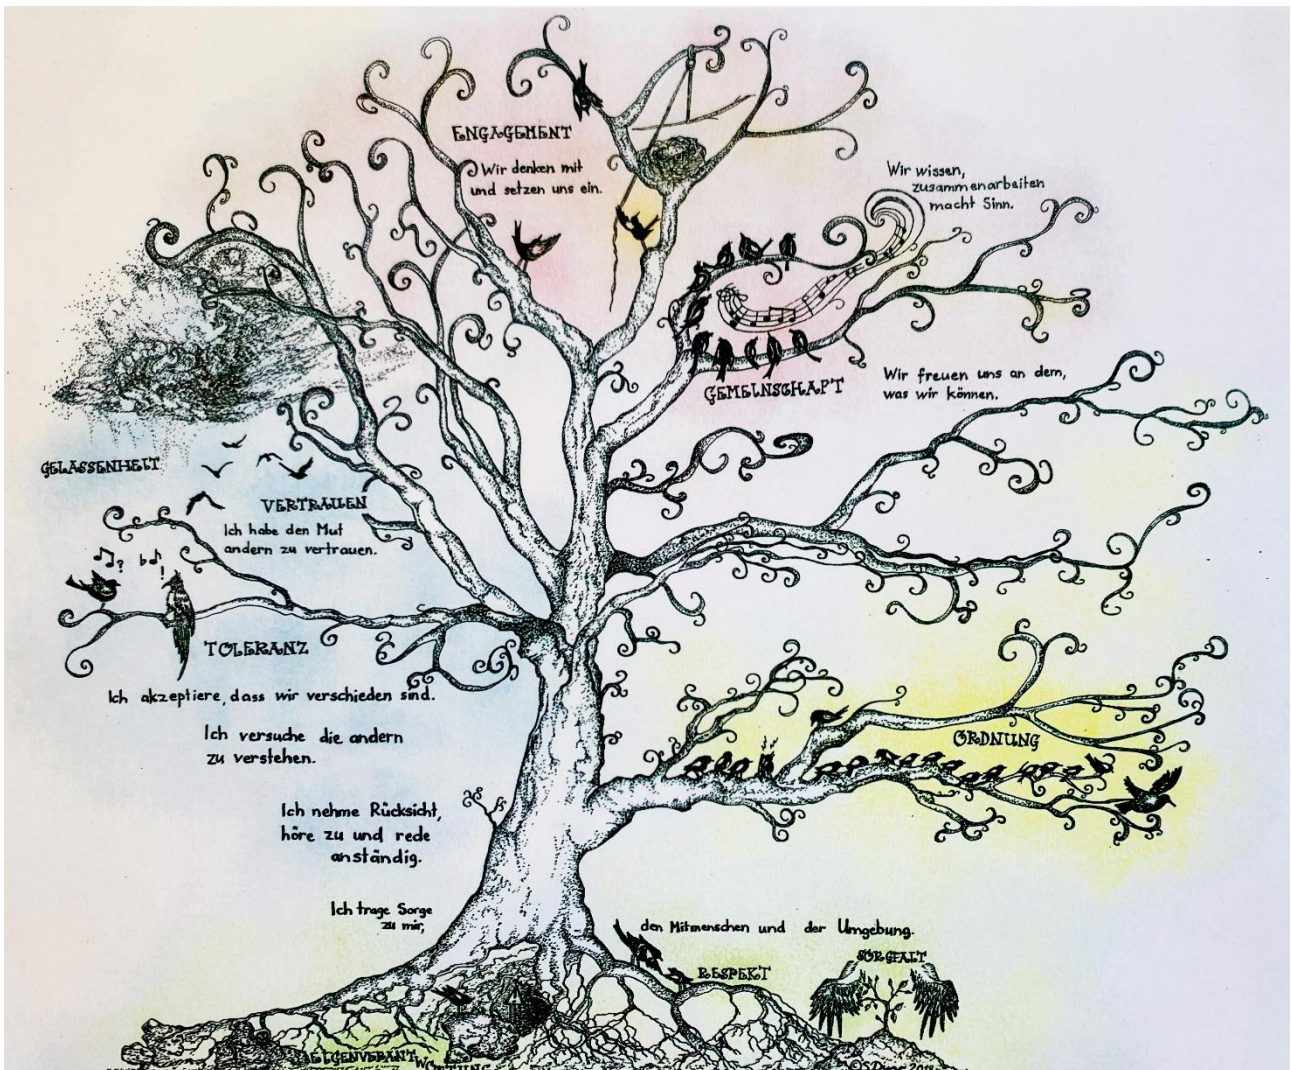 ENGAGEMENT
Wir denken mit
und setzen uns ein.
Wir wissen,
zusammenarbeiten
macht Sinn.
GEMEINSCHAFT
Wir freuen uns an dem,
was wir können.
GELASSENHEIT
VERTRAUEN
Ich habe den Mut
andern zu vertrauen.
TOLERANZ
Ich akzeptiere, dass wir verschieden sind.
Ich versuche die andern
zu verstehen.
ORDNUNG
Ich nehme Rücksicht,
höre zu und rede
anständig.
Ich trage Sorge
zu mir,
den Mitmenschen und der Umgebung.
RESPEKT
SORGFALT
EIGENVERANT
WORTUNG